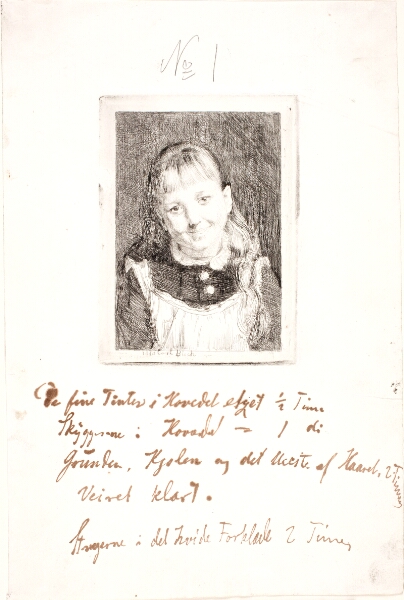 No 1
De fine Tinter i Hovedet ætset ½ Time
Skyggerne i Hovedet = 1 di
Grunden, Kjolen og det Meste af Haaret, 2 Timer
Veiret klart.
Stregerne i det hvide Forklæde 2 Timer